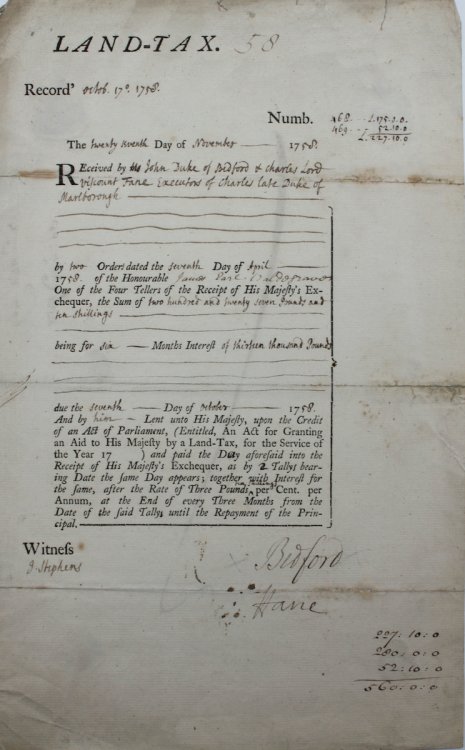 LAND-TAX. 58
Record' Octob. 17°. 1758.
Numb. 468 .. £175.0.0
469 .. 52.10.0
£.227.10.0
The twenty seventh Day of November 1758.
REceived by us John Duke of Bedford & Charles Lord
Viscount Fane Executors of Charles late Duke of
Marlborough
by two Orders dated the seventh Day of April
1758. of the Honourable James Earl Waldegrave
One of the Four Tellers of the Receipt of His Majesty's Ex-
chequer, the Sum of two hundred and twenty seven Pounds and
ten shillings
being for six Months Interest of thirteen thousand Pounds
due the seventh Day of October 1758.
And by him Lent unto His Majesty, upon the Credit
of an Act of Parliament, (Entitled, An Act for Granting
an Aid to His Majesty by a Land-Tax, for the Service of
the Year 17 ) and paid the Day aforesaid into the
Receipt of His Majesty's Exchequer, as by 2 Tallys bear-
ing Date the same Day appears; together with Interest for
the same, after the Rate of Three Pounds per Cent. per
Annum, at the End of every Three Months from the
Date of the said Tally, until the Repayment of the Prin-
cipal.
Witness
J. Stephens
Bedford
Fane
227:10:0
280:0:0
52:10:0
560:0:0